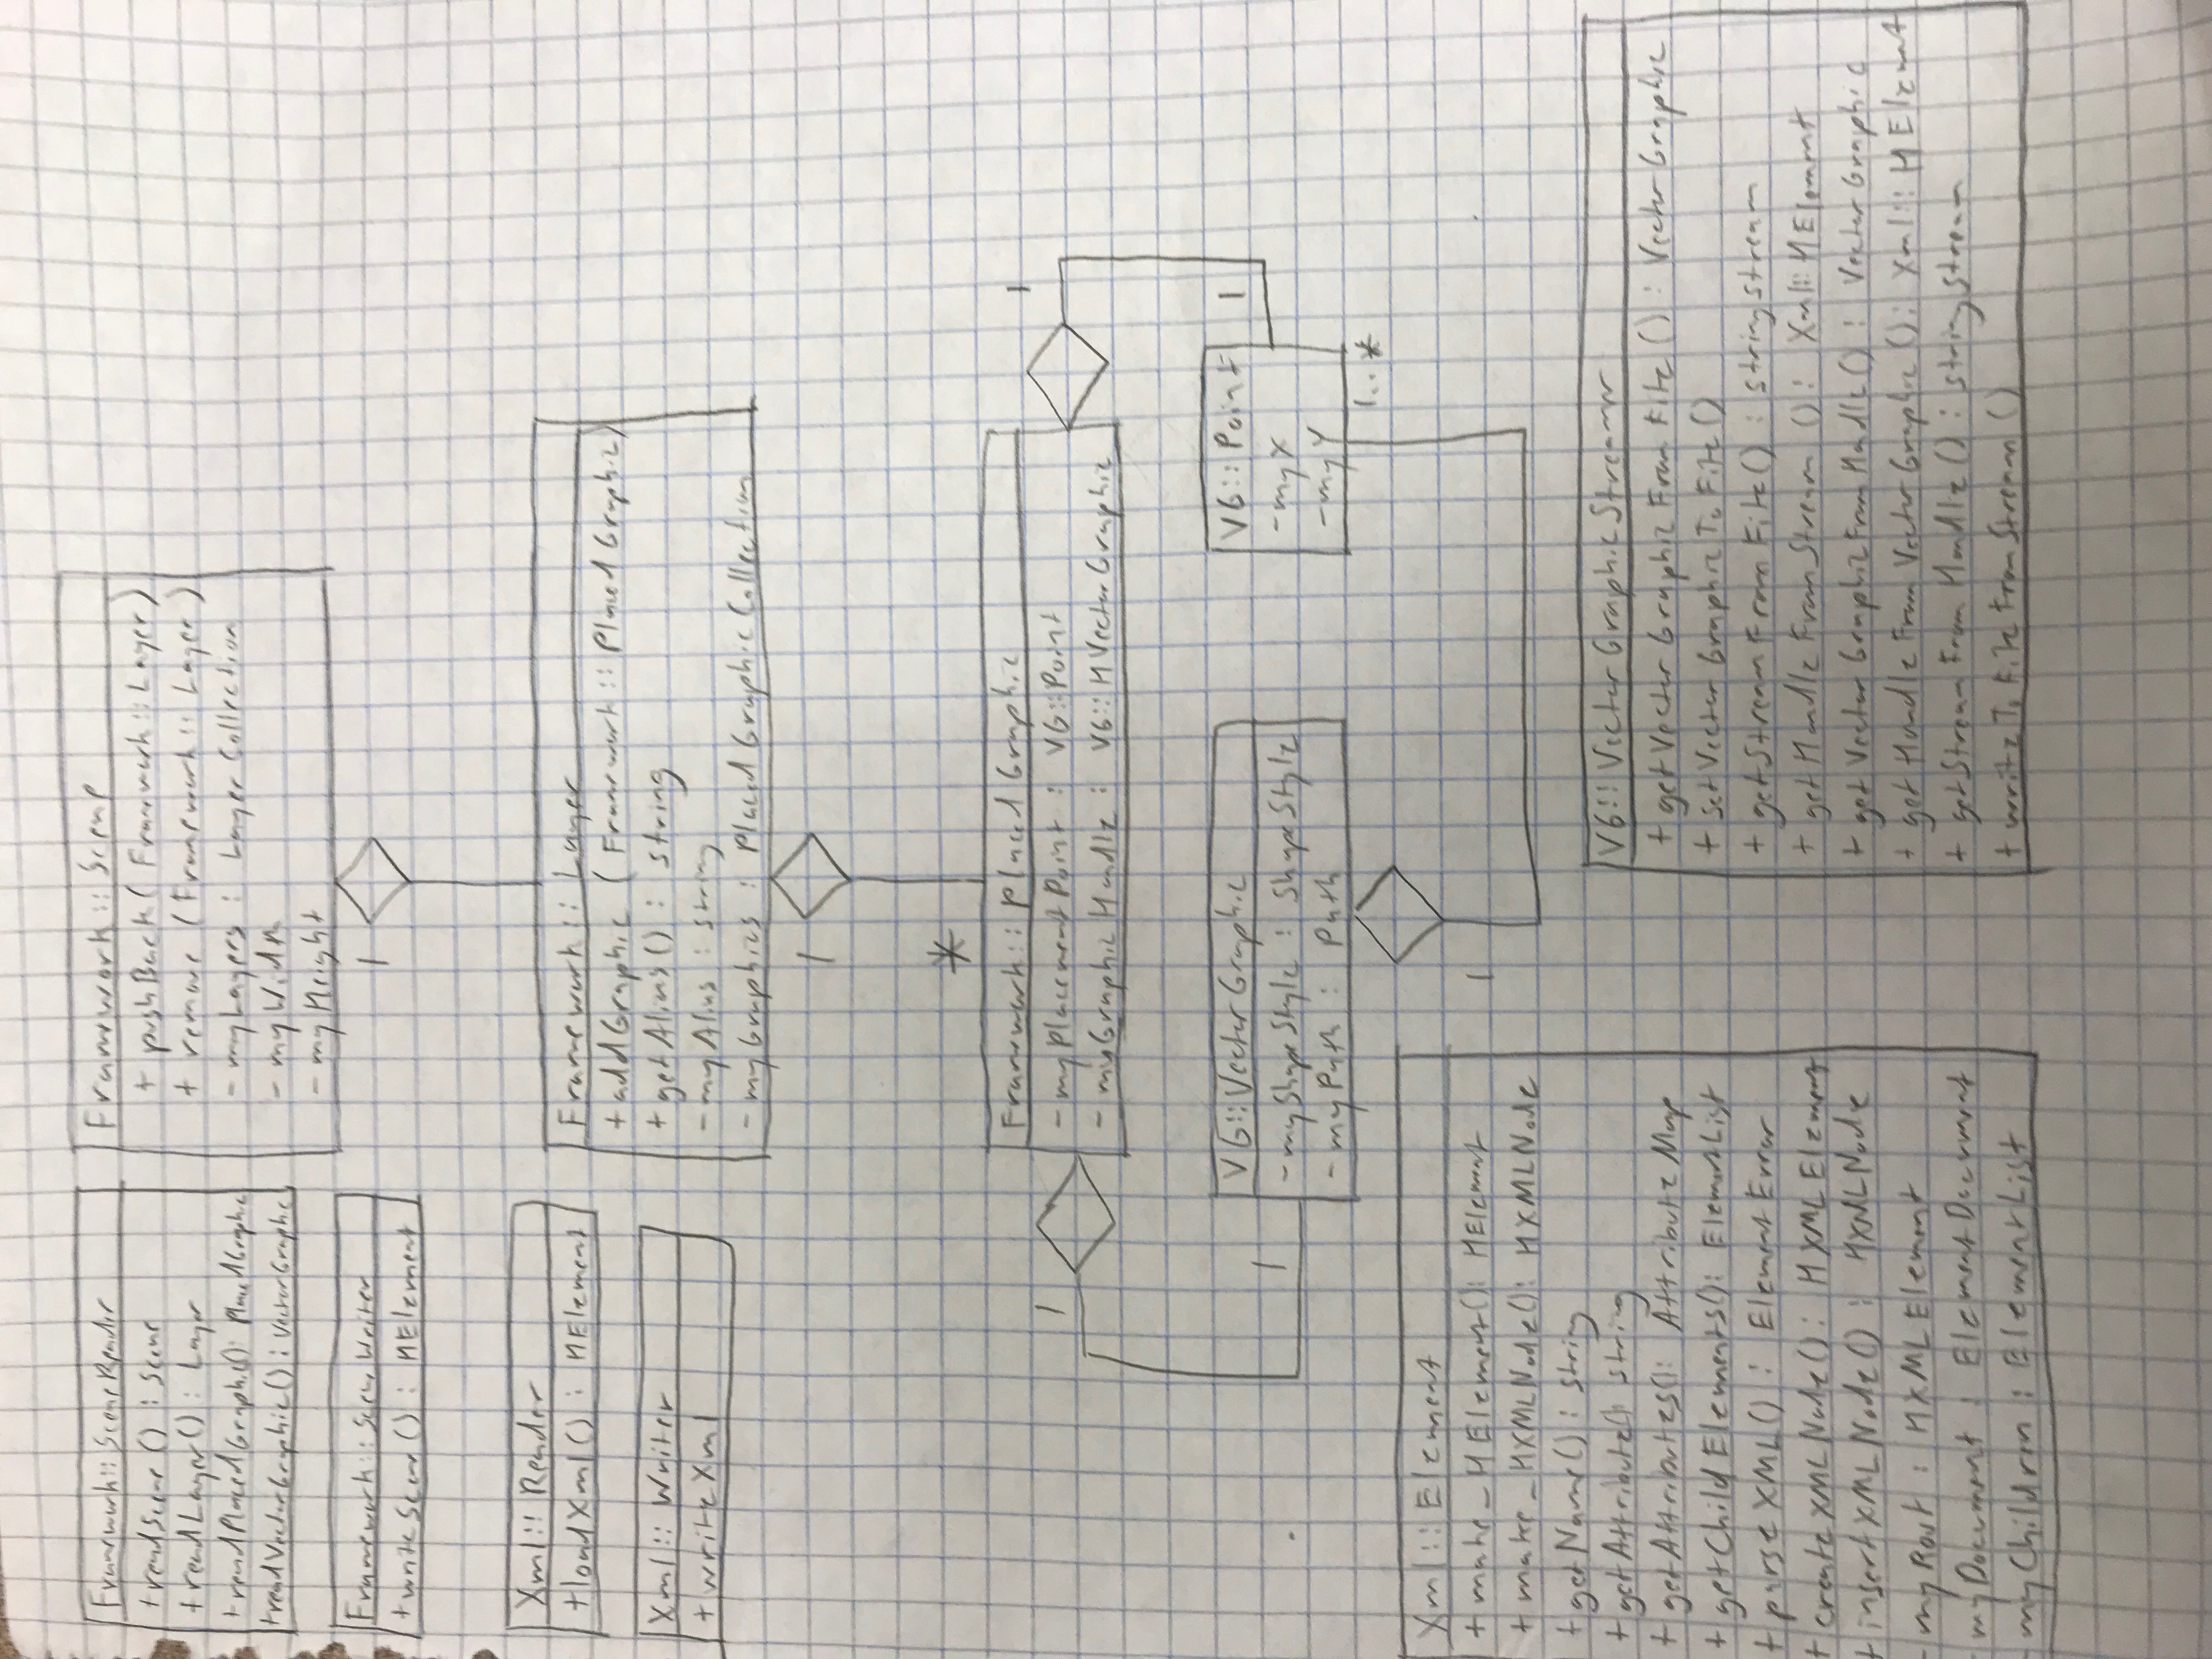 Framework:: SceneReader
+readScene() : Scene
+readLayer() : Layer
+readPlacedGraphic(): PlacedGraphic
+readVectorGraphic() : VectorGraphic
Framework:: Scene
+ pushBack( Framework:: Layer)
+ remove (Framework:: Layer)
- myLayers : LayerCollection
- myWidth
- myHeight
1
Framework:: SceneWriter
+writeScene() : HElement
Xml:: Reader
+loadXml() : HElement
Xml:: Writer
+ writeXml
Framework:: Layer
+ addGraphic (Framework:: PlacedGraphic)
+ getAlias() : string
- myAlias : string
- myGraphics : PlacedGraphicCollection
1
*
Framework:: PlacedGraphic
- myPlacementPoint : VG::Point
- myGraphicHandle : VG::HVectorGraphic
1
1
VG::VectorGraphic
- myShapeStyle : ShapeStyle
- myPath : Path
1
VG::Point
- myX
- myY
1
1..*
1
Xml:: Element
+ make_HElement(): HElement
+ make_HXMLNode(): HXMLNode
+ getName() : string
+ getAttribute() string
+ getAttributes(): AttributeMap
+ getChildElements(): ElementList
+ parseXML() : ElementError
+ createXMLNode(): HXMLElement
+ insertXMLNode() : HXMLNode
- myRoot : HXMLElement
- myDocument : ElementDocument
- myChildren : ElementList
VG:: VectorGraphicStreamer
+ getVectorGraphicFromFile() : VectorGraphic
+ setVectorGraphicToFile()
+ getStreamFromFile() : stringstream
+ getHandleFromStream () : Xml::HElement
+ getVectorGraphicFromHandle() : VectorGraphic
+ getHandleFromVectorGraphic(): Xml:: HElement
+ getStreamFromHandle() : stringstream
+ writeToFileFromStream ()